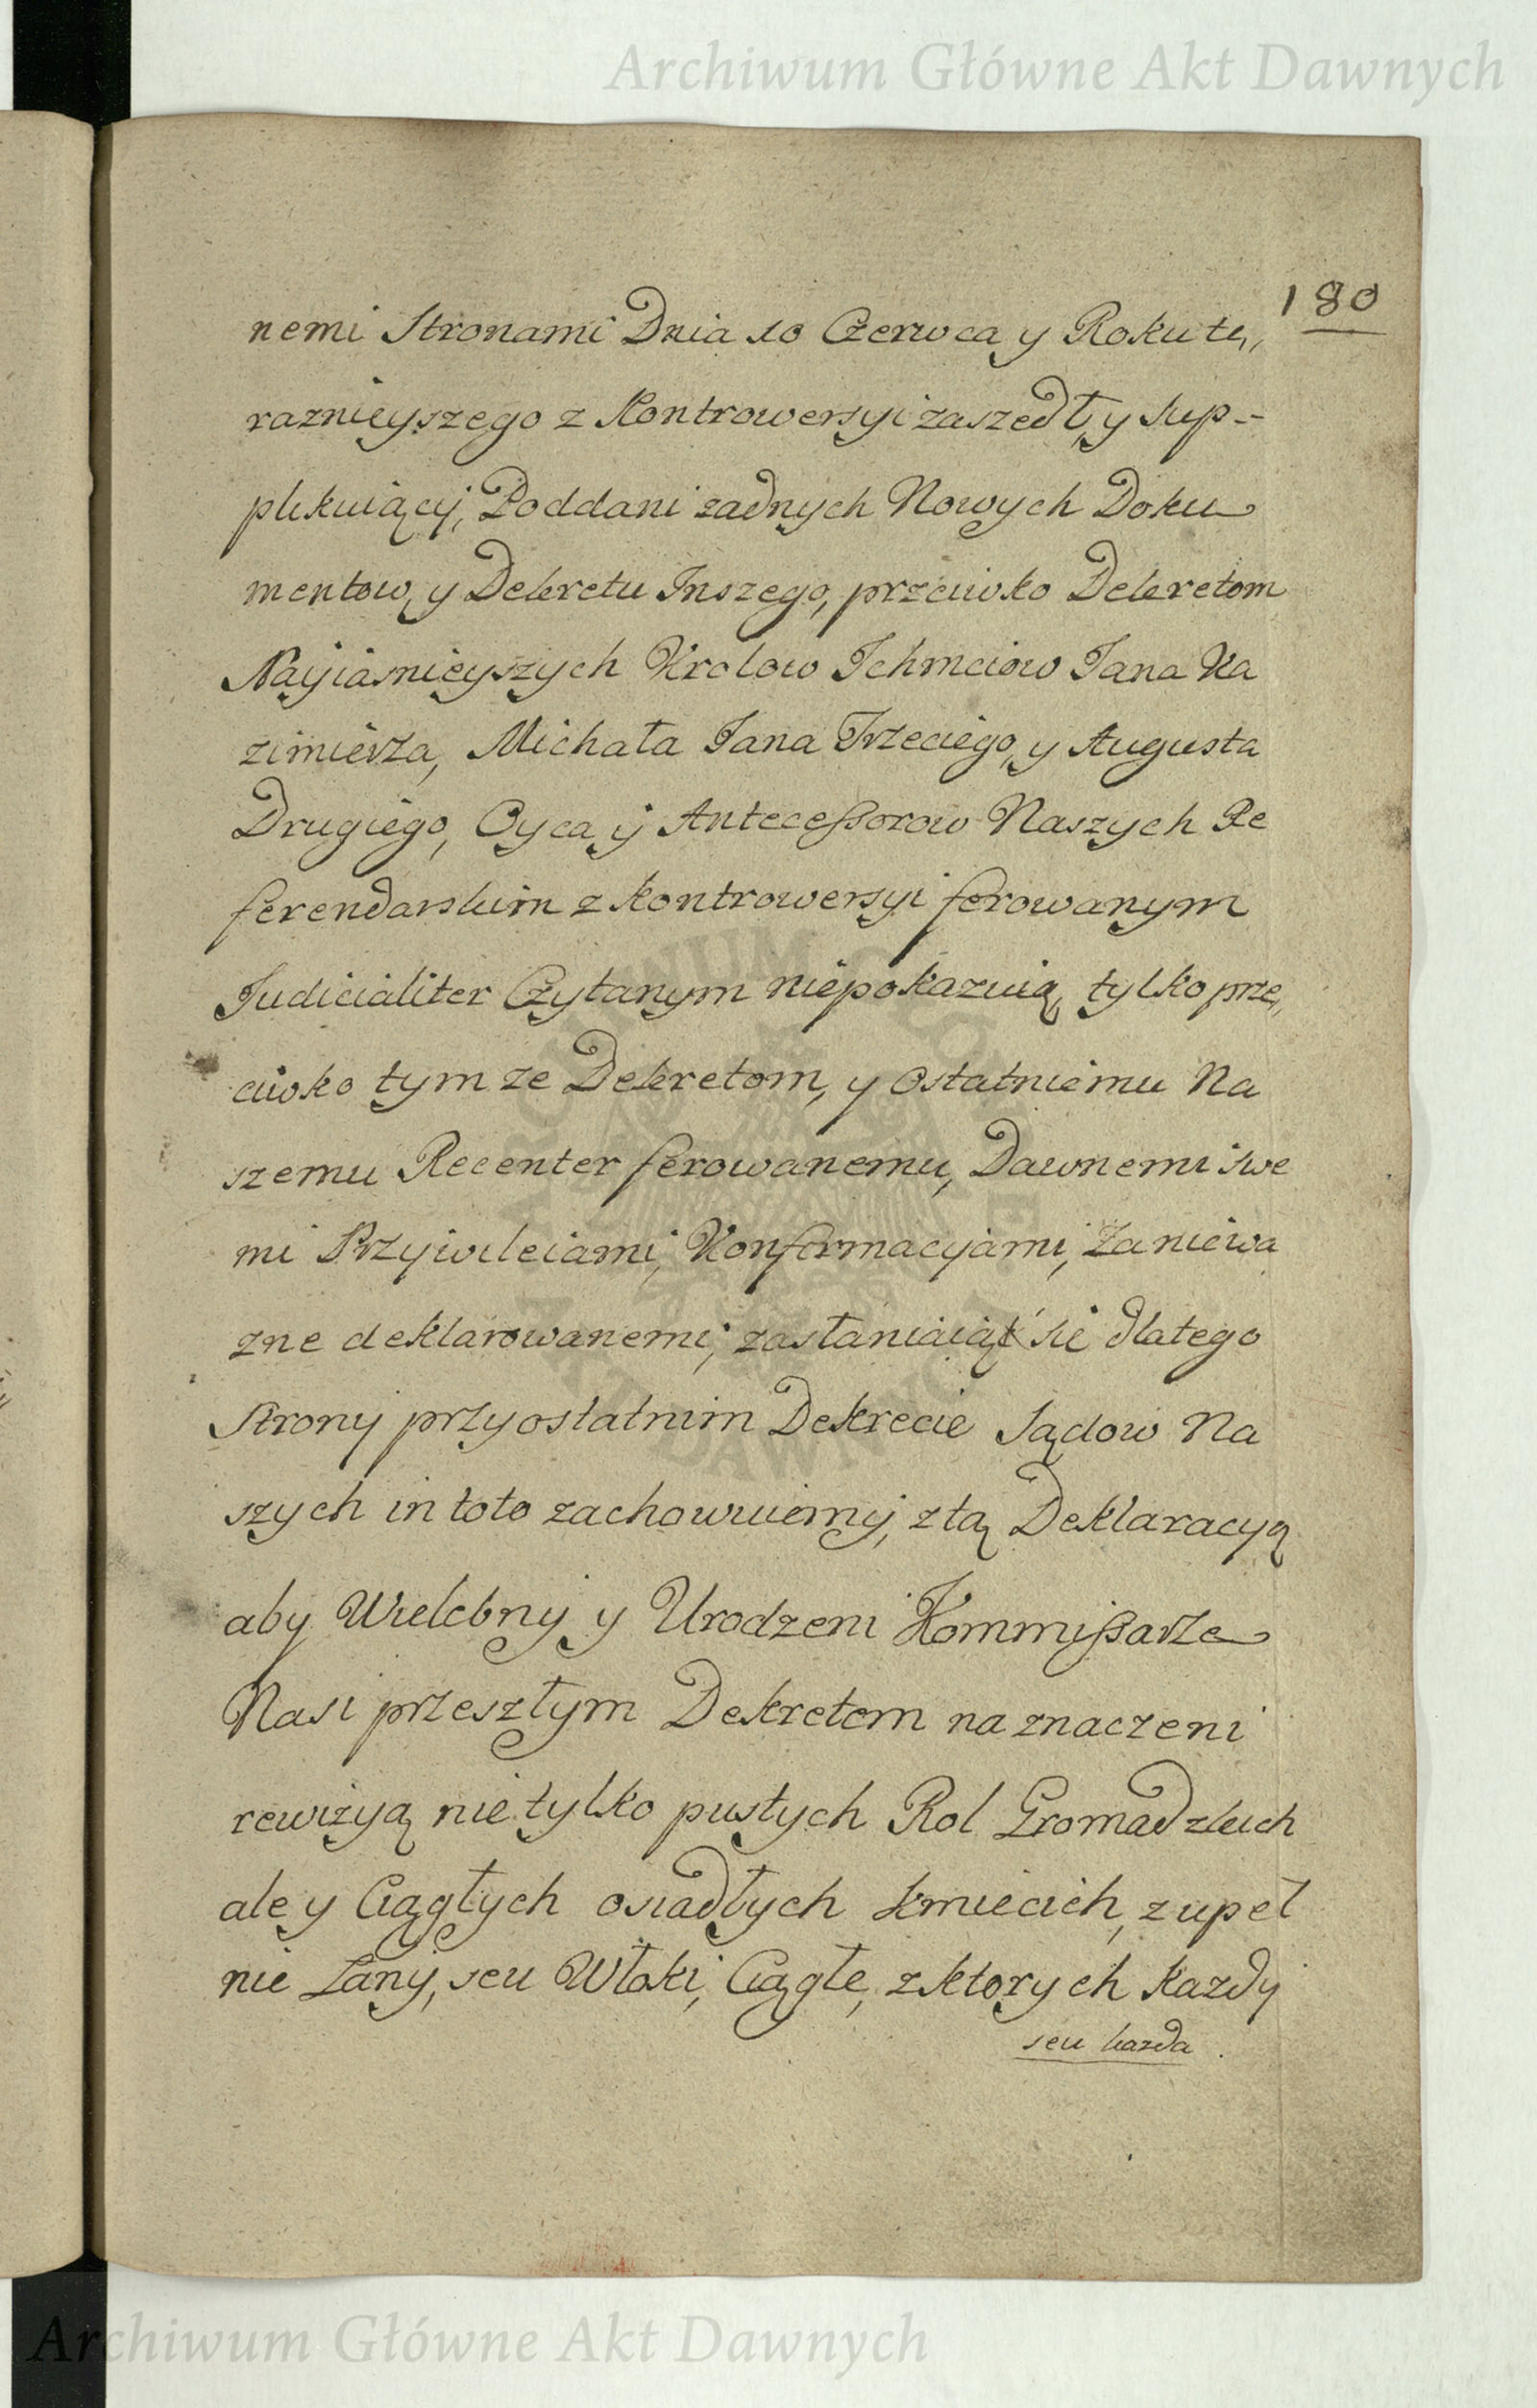 Archiwum Główne Akt Dawnych
180
nemi Stronami Dnia 10 Czerwca y Roku te,,
raznieyszego z Kontrowersyi zaszedł, y sup--
plikuiący, Poddani zadnych Nowych Doku
mentow, y Dekretu Inszego, przeciwko Dekretom
Nayiasnieyszych Krolow Ichmciow Jana Ka
zimierza, Michała Jana Trzeciego, y Augusta
Drugiego, Oyca, y Antecessorow Naszych Re
ferendarskim z kontrowersyi ferowanym
Judicialiter Czytanym niepokazuią, tylko prze,,
ciwko tym ze Dekretom, y Ostatniemu Na
szemu Recenter ferowanemu, Dawnemi swe
mi Przywileiami, Konformacyiami, Za niewa
zne deklarowanemi, zasłaniaiąć sie dlatego
Strony przy ostatnim Dekrecie Sądow Na
szych in toto zachowuiemy, z tą Deklaracyą
aby Wielebny y Urodzeni Kommissarze
Nasi przeszłym Dekretem naznaczeni
rewizyą nie tylko pustych Rol Gromadzkich
ale y Ciągłych osiadłych kmiecich, zupeł
nie Łany, seu Włoki, Ciągłe, z ktorych kazdy
seu kazda.
Archiwum Główne Akt Dawnych